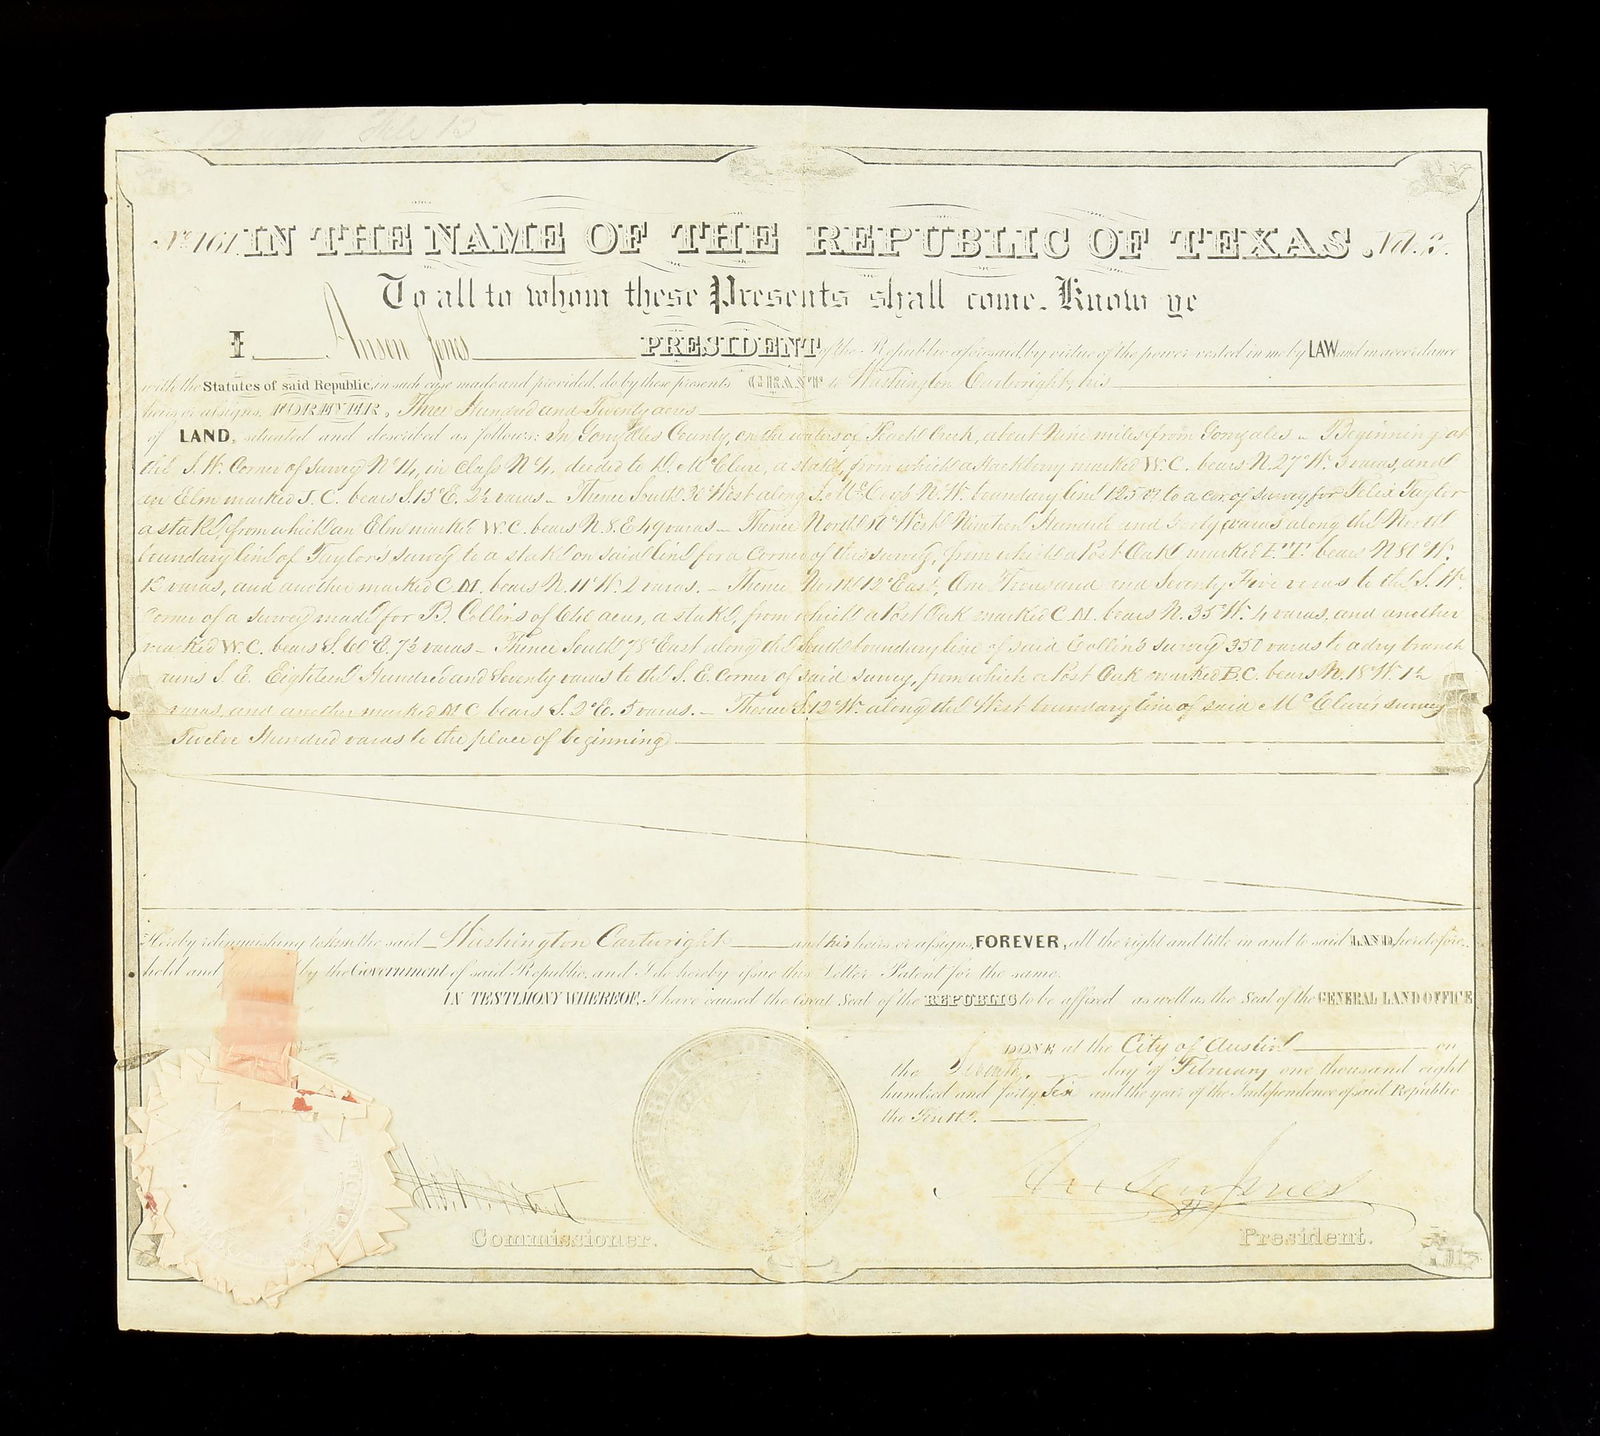 IN THE NAME OF THE REPUBLIC OF TEXAS.
To all to whom these Presents shall come. Know ye
I Anson Jones PRESIDENT of the Republic aforesaid, by virtue of the power vested in me by LAW and in accordance
with the Statutes of said Republic, in such case made and provided, do by these presents GRANT to Washington Cartwright, his
heirs or assigns, FOREVER, Three Hundred and Twenty acres
of LAND, situated and described as follows: In Gonzales County, on the waters of Peach Creek, about Nine miles from Gonzales – Beginning at
the S.W. Corner of Survey No 14, in Class No 4, deeded to D. McClure, a stake, from which a Hackberry marked W.C. bears N. 27° W. 3 varas, and
an Elm marked J.C. bears S. 15° E. 2½ varas – Thence South West along J. McCoy's N.W. boundary line 125 vs to a cor. of survey for Felix Taylor
a stake, from which an Elm marked W.C. bears N. 8° E. 49 varas – Thence North West Nineteen Hundred and Forty varas along the North
boundary line of Taylors survey to a stake on said line for a Corner of this survey, from which a Post Oak marked bears N. W.
varas, and another marked C.M. bears N. 11° W. 2 varas. – Thence North 12° East, One Thousand and Seventy Five varas to the S.W.
Corner of a survey made for B. Collins of acres, a stake, from which a Post Oak marked C.M. bears N. 35° W. 4 varas, and another
marked W.C. bears S. 60° E. 7½ varas – Thence South 78° East along the South boundary line of said Collin's survey 350 varas to a dry branch
runs S.E. Eighteen Hundred and Seventy varas to the S.E. Corner of said survey, from which a Post Oak marked B.C. bears N. 18° W. 1½
varas, and another marked M.C. bears S. 2° E. 5 varas. – Thence S. 12° W. along the West boundary line of said McClure's survey
Twelve Hundred varas to the place of beginning
Hereby relinquishing to him the said Washington Cartwright and his heirs or assigns, FOREVER, all the right and title in and to said LAND, heretofore
held and by the Government of said Republic, and I do hereby issue this Letter Patent for the same.
IN TESTIMONY WHEREOF, I have caused the Great Seal of the REPUBLIC to be affixed as well as the Seal of the GENERAL LAND OFFICE
DONE at the City of Austin on
the day of February one thousand eight
hundred and forty Six and the year of the Independence of said Republic
the Tenth.
Anson Jones
Commissioner.
President.